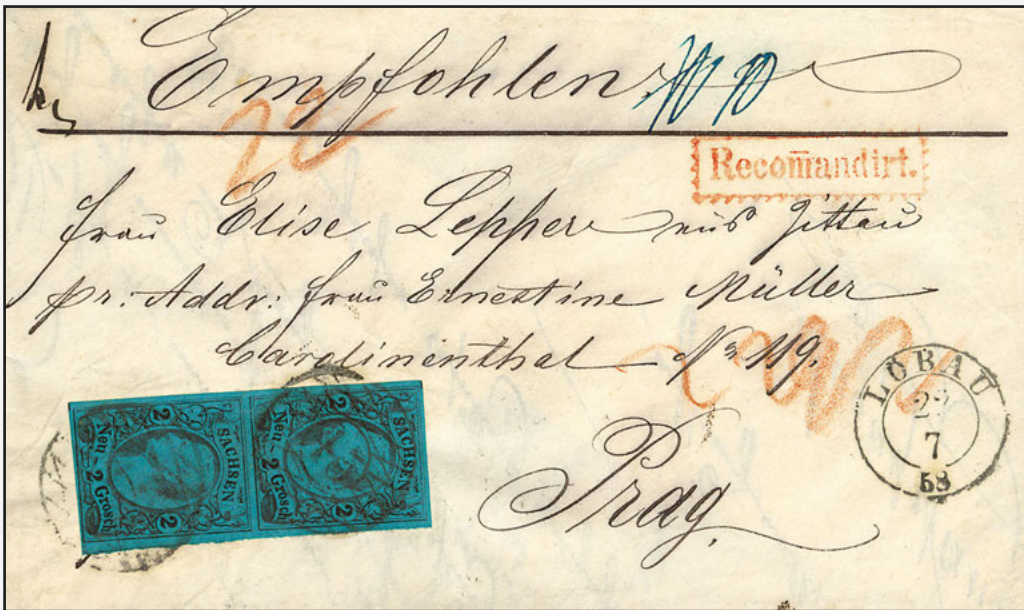 Empfohlen
Recom̅andirt.
Frau Elise Lepper aus Zittau
pr: Addr: Frau Ernestine Müller
Carolinenthal No 119.
Prag.
LÖBAU
7
58
SACHSEN
2 2
Neu-2 Grosch
SACHSEN
2 2
Neu-2 Grosch